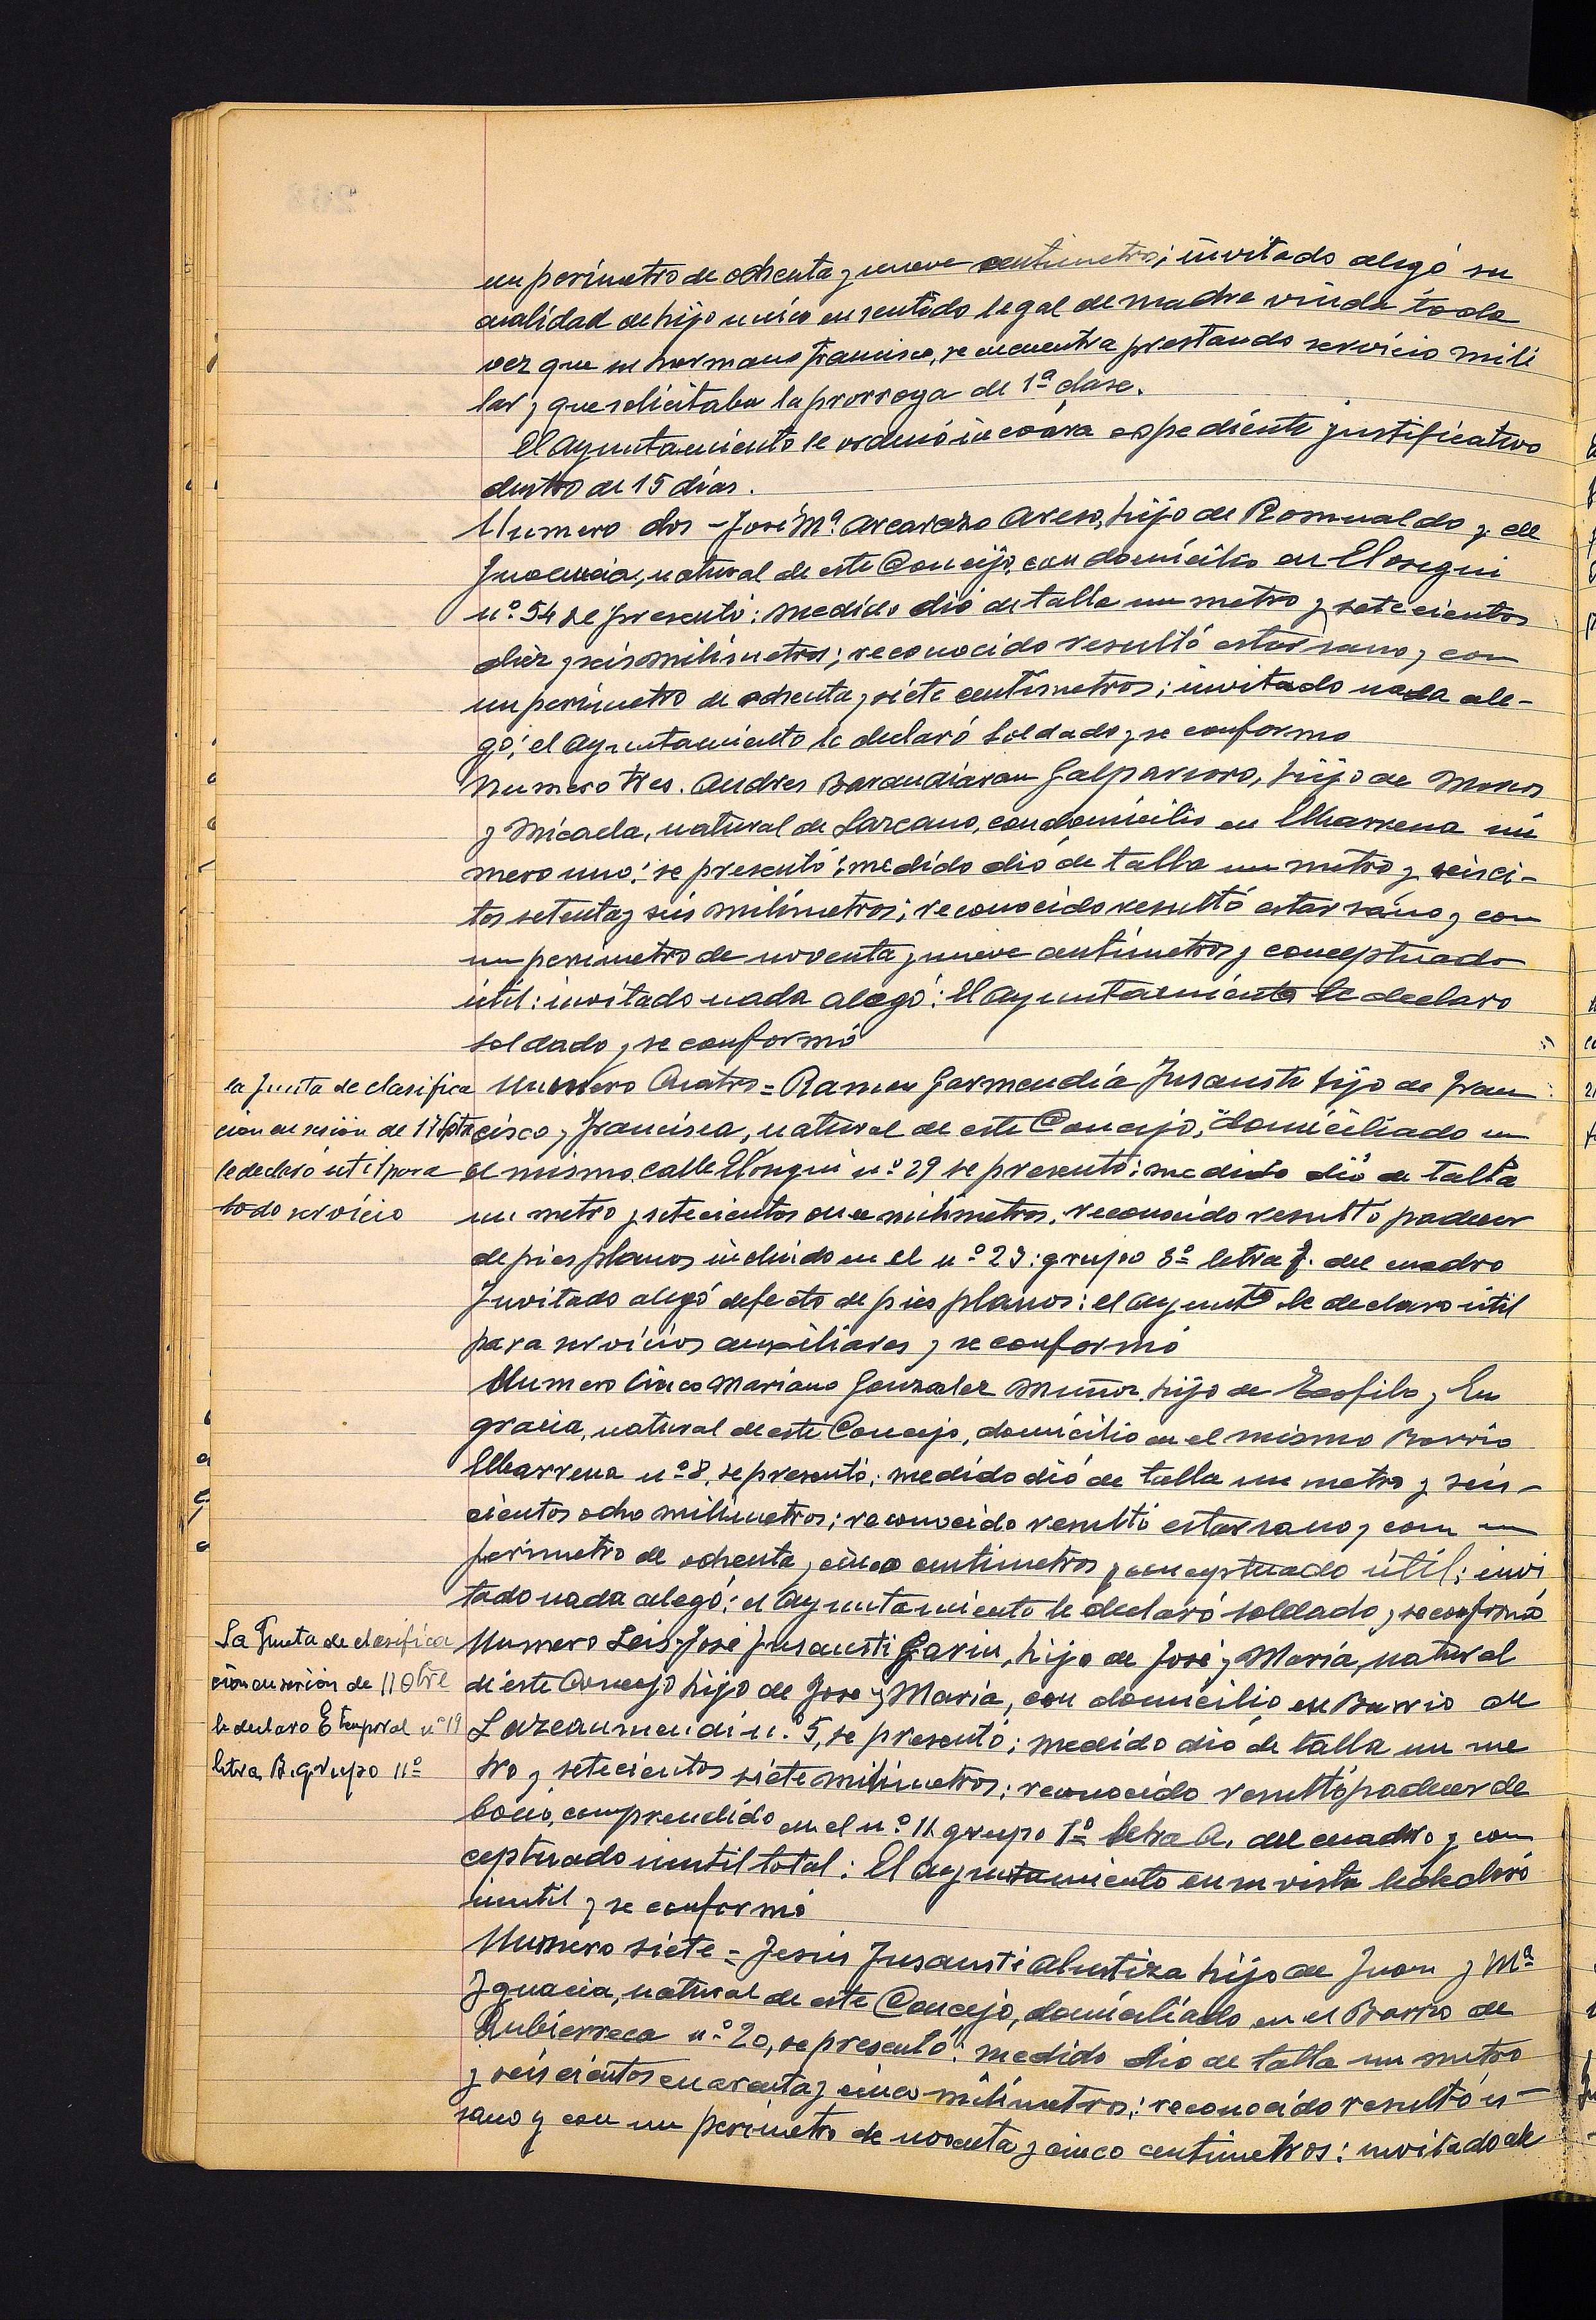 un perímetro de ochenta y nueve centimetros; invitado alegó su
cualidad de hijo unico en sentido legal de madre viuda toda
vez que su hermano Francisco, se encuentra prestando servicio mili
tar y que solicitaba la prorroga de 1ª clase.
El Ayuntamiento le ordenó incoára expediente justificativo
dentro de 15 días.
Numero dos - José Mª Arcarazo Areso, hijo de Romualdo y de
Inocencia, natural de este Concejo, con domicilio en Elosegui
nº 54 se presentó: medido dió de talla un metro y setecientos
diez y seis milimetros; reconocido resultó estar sano y con
un perímetro de ochenta y siete centímetros; invitado nada ale-
gó; el Ayuntamiento le declaró soldado y se conformo
Numero tres. Andres Barandiaran Galparsoro, hijo de
y Micaela, natural de Lazcano, con domicilio en Elbarrena nú
mero uno: se presentó: medido dió de talla un metro y seisci-
tos setenta y seis milímetros; reconocido resultó estar sano y con
un perimetro de noventa y nueve centímetros y conceptuado
útil: invitado nada alegó: El Ayuntamiento le declaro
soldado y se conformó
la Junta de clasifica
cion en sesión de 17
le declaró util para
todo servicio
Numero Cuatro = Ramon Garmendia Insausti hijo de Fran
cisco y Francisca, natural de este Concejo, domiciliado en
el mismo calle Elosegui nº 29 se presentó: medido dió de talla
un metro y setecientos once milímetros, reconocido resultó padecer
de pies planos incluido en el nº 23: grupo 3º letra f. del cuadro
Invitado alegó defecto de pies planos: el Ayuntº le declaro útil
para servicios auxiliares y se conformó
Numero Cinco Mariano Gonzalez Muñoz, hijo de Teofilo y En
gracia, natural de este Concejo, domicilio en el mismo Barrio
Elbarrena nº 8, se presentó; medido dió de talla un metro y seis-
cientos ocho milimetros; reconocido resultó estar sano y con un
perimetro de ochenta y cinco centimetros y conceptuado útil; invi
tado nada alegó; el Ayuntamiento le declaró soldado y se conformó
La Junta de clasifica
ción en sesión de 11 Obre
le declaro E temporal nº 19
letra B. grupo 11º
Numero Seis José Insausti Garin, hijo de José y María, natural
de este Concejo hijo de Jose y Maria, con domicilio en Barrio de
Lazcaumendi n.º 5, se presentó; medido dió de talla un me
tro y setecientos siete milimetros; reconocido resultó padecer de
bocio, comprendido en el nº 11 grupo 1º letra A. del cuadro y con
ceptuado inutil total: El Ayuntamiento en su vista le declaró
inutil y se conformó
Numero siete = Jesús Insausti Abustiza hijo de Juan y Mª
Ignacia, natural de este Concejo, domiciliado en el Barrio de
Zubierreca nº 20, se presentó: medido dio de talla un metro
y seiscientos cuarenta y cinco milímetros; reconocido resultó es-
sano y con un perímetro de noventa y cinco centímetros: invitado ale